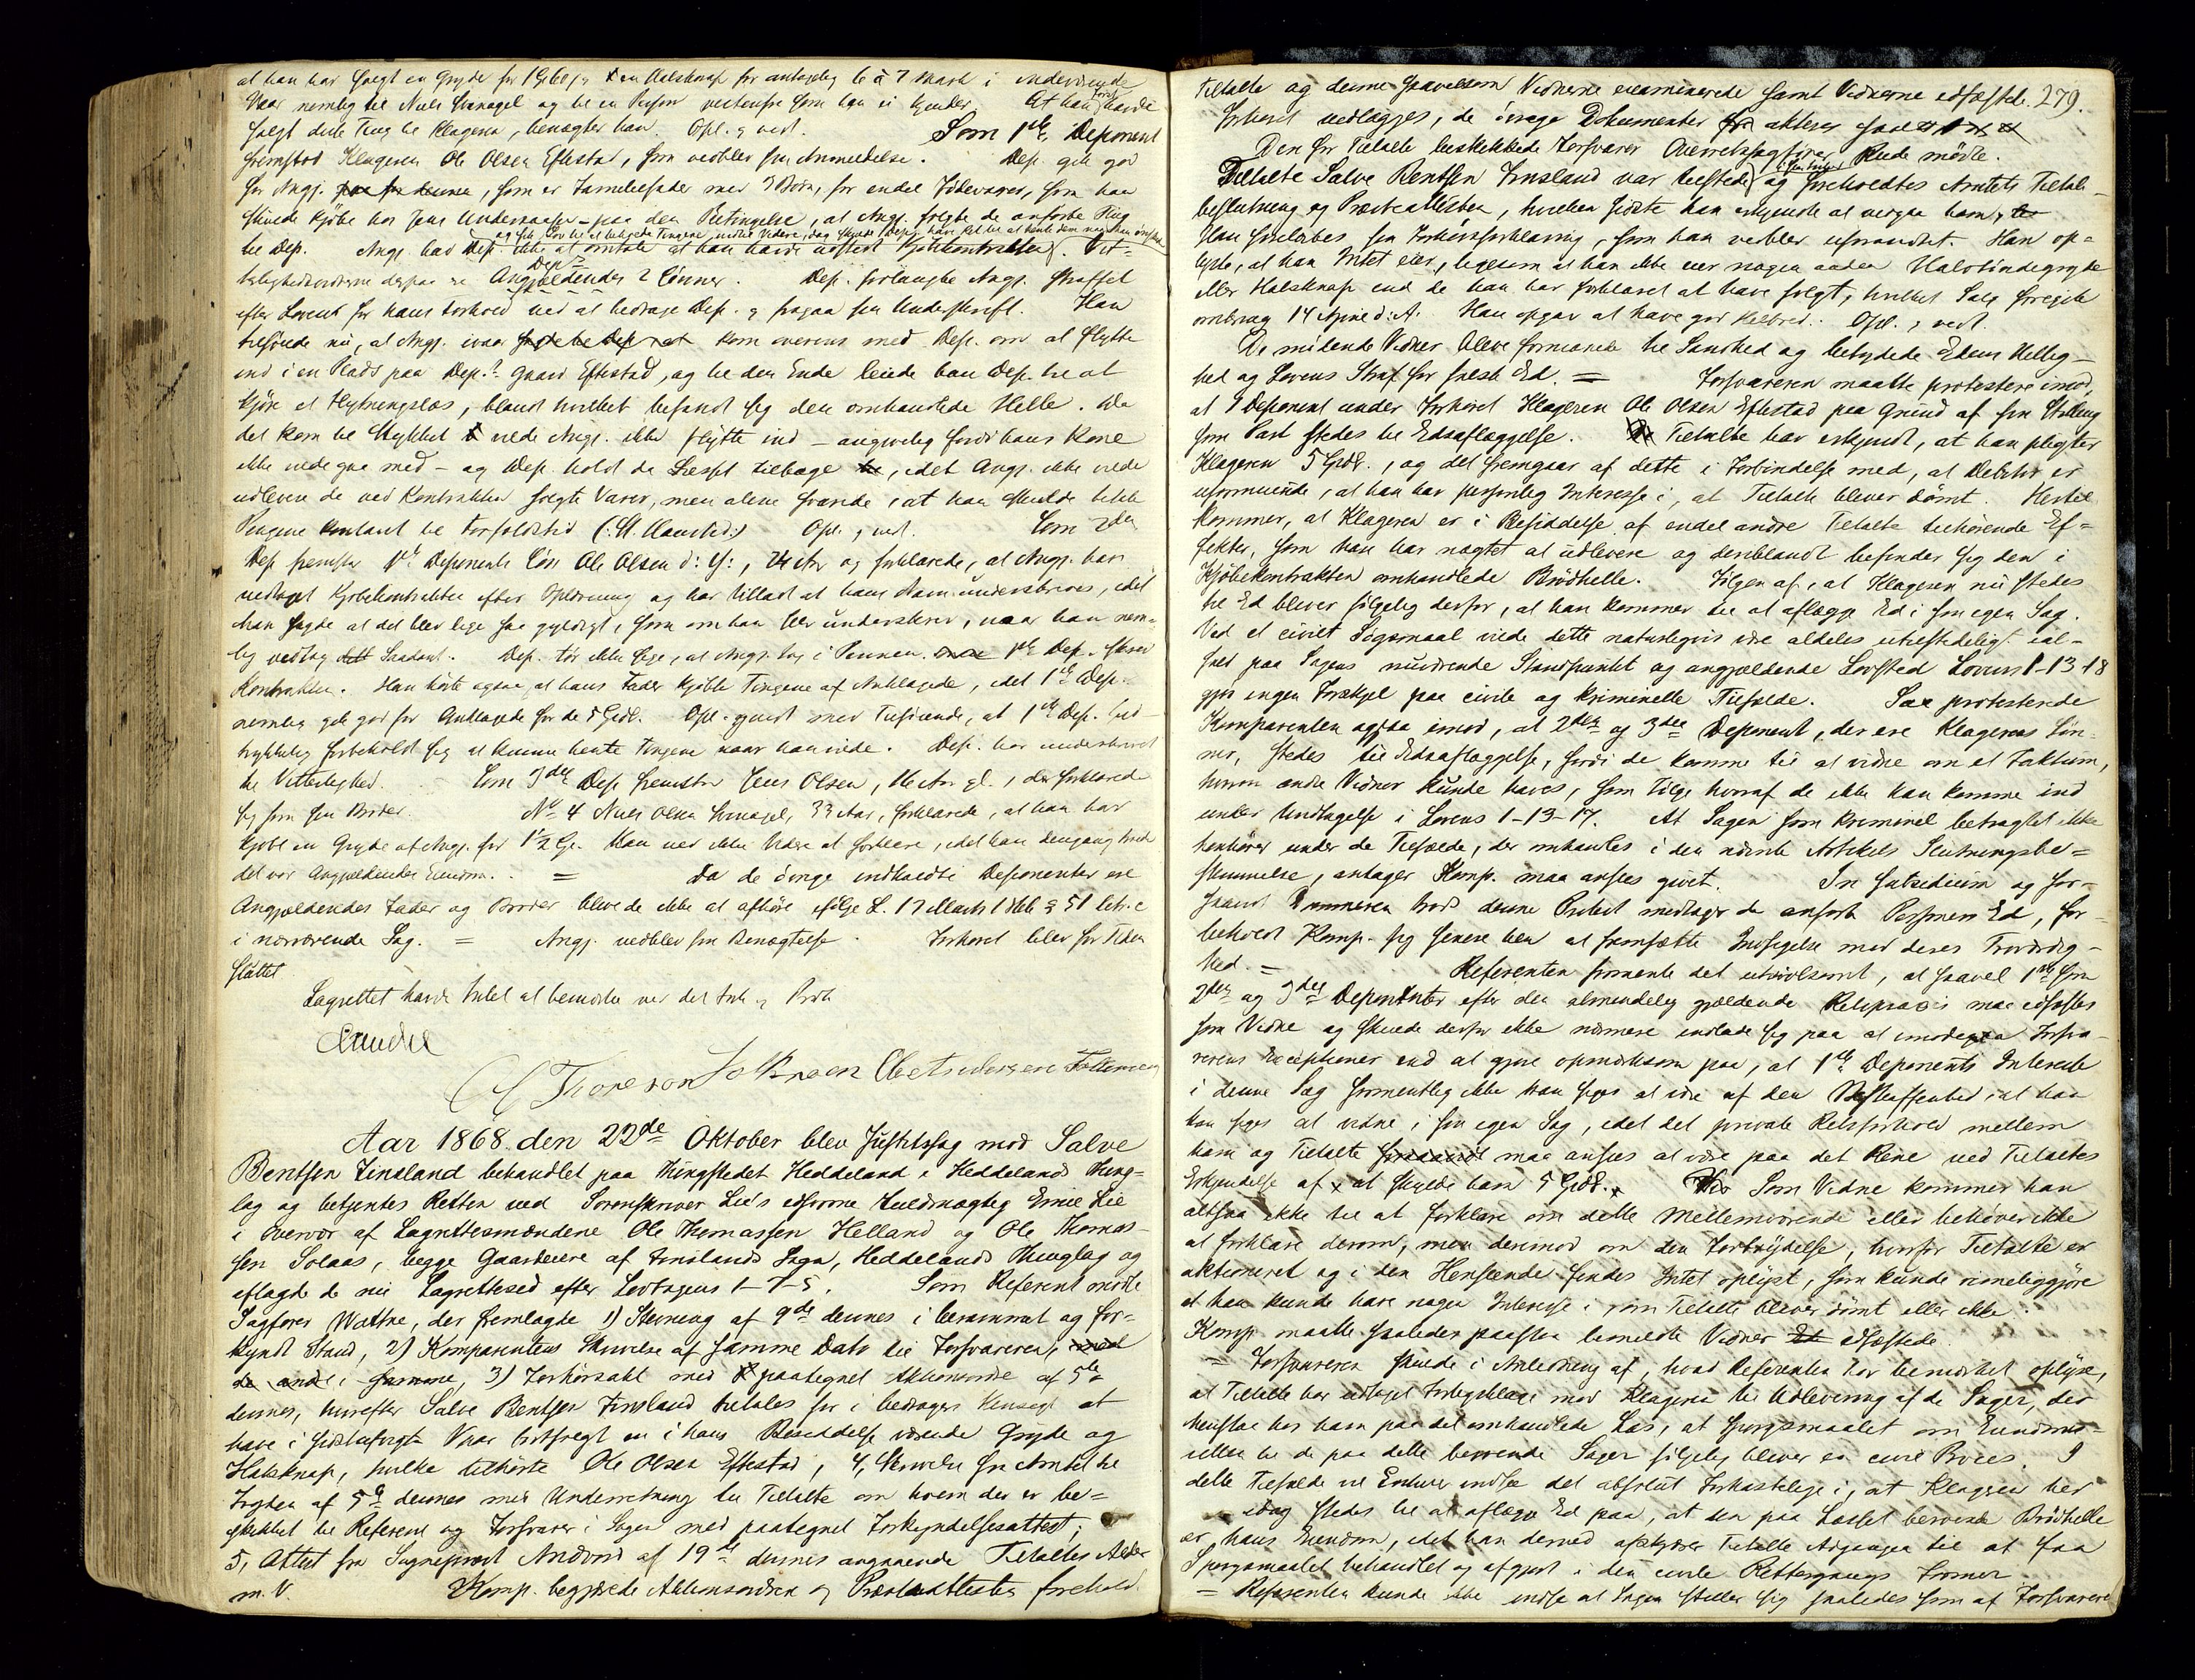 at han har solgt en Gryde for 1 & en Halsknap for antagelig 6 à 7 Mark i indeværende
Vaar nemlig til Niels Svenagel og til en Person vestenfra som han ei kjender. At han havde
solgt dette Ting til Klageren, benægter han. Opl. & vedt. Som 1ste Deponent
fremstod Klageren Ole Olsen Eftestad, som vedblev sin Anmeldelse. Dep. gik god
for Angj. , som er Familiefader med 3 Børn, for endel Fødevarer, som han
skulde kjøbe hos Jens Undersaaker paa den Betingelse, at Angj. solgte de anførte Ting
til Dep. Angj. bad Dep. ikke at omtale at han havde udstedt Kjøbekontrakten. Vit-
terlighedsvidnerne derpaa ere Dep.s 2 Sønner. Dep. forlangte Angj. straffet
efter Loven for hans Forhold ved at bedrage Dep. & fragaa sin Underskrift. Han
tilføiede nu, at Angj. ivaar kom overens med Dep. om at flytte
ind i en Plads paa Dep.s Gaard Eftestad, og til den Ende leiede han Dep. til at
kjøre et Flytningslæs, blandt hvilket befandt sig den omhandlede Helle. Da
det kom til Stykket vilde Angj. ikke flytte ind – angivelig fordi hans Kone
ikke vilde gaa med – og Dep. holdt da Læsset tilbage, idet Angj. ikke vilde
udlevere de ved Kontrakten solgte Varer, men alene svarede, at han skulde betale
Pengene kontant til Forfaldstid Opl. & vedt. Som 2den
Dep. fremstod 1ste Deponents Søn Ole Olsen d: y:, 24 Aar og forklarede, at Angj. har
vedtaget Kjøbekontrakten efter Oplæsning og har tilladt at hans Navn underskreves, idet
han sagde at det blev lige saa gyldigt, som om han selv underskrev, naar han nem-
lig vedtog Saadant. Dep. tør ikke sige, at Angj. tog i Pennen. 1ste Dep. skrev
Kontrakten. Han hørte ogsaa, at hans Fader kjøbte Tingene af Anklagede, idet 1ste Dep.
nemlig gik god for Anklagede for de 5 Spdl. Opl. & vedt med Tilføiende, at 1ste Dep. ud-
trykkelig forbeholdt sig at kunne hente Tingene naar han vilde. Dep. har underskrevet
til Vitterlighed. Som 3die Dep. fremstod Jens Olsen, 16 Aar gl., der forklarede
sig som sin Broder. No 4 Niels Olsen Svenagel, 33 Aar, forklarede, at han har
kjøbt en Gryde af Angj. for 1½ Han ved ikke Videre at forklare, idet han dengang troede
det var Angjældendes Eiendom. = Da de øvrige indkaldte Deponenter ere
Angjældendes Fader og Broder blev de ikke at afhøre ifølge L. 17 Marts 1866 § 51 Litr. c
i nærværende Sag. = Angj. vedblev sin Benægtelse. Forhøret blev for Tiden
sluttet
Lagrettet havde Intet at bemærke ved det

Aar 1868 den 22de Oktober blev Justitssag mod Salve
Bentsen Finsland behandlet paa Thingstedet Heddeland i Heddelands Thing-
lag og betjentes Retten ved Sorenskriver Lie's edsvorne Fuldmægtig Emil Lie
i Overvær af Lagrettesmændene Ole Thomassen Helland og Ole Thomas-
sen Solaas, begge Gaardeiere af Finslands Sogn, Heddelands Thinglag og
aflagde de nu Lagretteseed efter Lovbogens 1–7–5. Som Referent mødte
Sagfører Wattne, der fremlagde 1) Stevning af 9de dennes i berammet og for-
kyndt Stand, 2) Komparentens Skrivelse af samme Dato til Forsvareren,
3) Forhørsakt med paategnet Aktionsordre af 5te
dennes, hvorefter Salve Bentsen Finsland tiltales for i bedragersk Hensigt at
have i sidstafvigte Vaar bortsolgt en i hans Besiddelse værende Gryde og
Halsknap, hvilke tilhørte Ole Olsen Eftestad, 4, Skrivelse fra Amtet til
Fogden af 5te dennes med Underretning til Tiltalte om hvem der er be-
skikket til Referent og Forsvarer i Sagen med paategnet Forkyndelsesattest;
5, Attest fra Sogneprest af 19de dennes angaaende Tiltaltes Alder
m. V. Komp. begjærede Aktionsordren og Presteattesten foreholdt
279.
Tiltalte og denne saavelsom Vidnerne examinerede samt Vidnerne edfæstede.
Forhøret vedlægges, de øvrige Dokumenter akteres saal.
Den for Tiltalte beskikkede Forsvarer Overretssagfører Rude mødte.
Tiltalte Salve Bentsen Finsland var tilstede og foreholdtes Amtets Tiltale-
beslutning og Presteattesten, hvilken sidste han erkjendte at vedgaa ham,
Han forelæstes sin Forhørsforklaring, som han vedblev uforandret. Han op-
lyste, at han Intet eier, ligesom at han ikke eier nogen anden Halvtøndegryde
eller Halsknap end de han har forklaret at have solgt, hvilket Salg foregik
omkring 14 April d: A. Han opgav at have god Helbred. Opl. & vedt.
De mødende Vidner bleve formanede til Sandhed og betydede Edens Hellig-
hed og Lovens Straf for falsk Ed. = Forsvareren maatte protestere imod,
at 1 Deponent under Forhøret Klageren Ole Olsen Eftestad paa Grund af sin Stilling
som Part stedes til Edsaflæggelse. Tiltalte har erkjendt, at han pligter
Klageren 5 Spdl., og det fremgaar af dette i Forbindelse med, at Debitor er
uformuende, at han har personlig Interesse i, at Tiltalte bliver dømt. Hertil
kommer, at Klageren er i Besiddelse af endel andre Tiltalte tilhørende Ef-
fekter, som han har nægtet at udlevere og deriblandt befinder sig den i
Kjøbekontrakten omhandlede Brødhelle. Følgen af, at Klageren nu stedes
til Ed bliver følgelig derfor, at han kommer til at aflægge Ed i sin egen Sag.
Ved et civilt Søgsmaal vilde dette naturligvis være aldeles utilstedeligt ial-
fald paa Sagens nuværende Standpunkt og angjældende Lovsted Lovens 1–13–18
gjør ingen Forskjel paa civile og kriminelle Tilfælde. Saa protesterede
Komparenten ogsaa imod, at 2den og 3die Deponent, der ere Klagerens Søn-
ner, stedes til Edsaflæggelse, fordi de komme til at vidne om et Faktum,
hvorom andre Vidner kunde haves, som Følge hvoraf de ikke kan komme ind
under Undtagelse i Lovens 1–13–17. At Sagen som kriminel betragtet ikke
henhører under de Tilfælde, der omhandles i den nævnte Artikels Slutningsbe-
stemmelse, antager Komp. maa ansees givet. In subsidium og for-
saavidt Dommeren trods denne Protest modtager de anførte Personers Ed, for-
beholdt Komp. sig senere hen at fremsætte Indsigelse mod deres Troværdig-
hed. = Referenten formente det utvivlsomt, at saavel 1ste som
2den og 3die Deponenter efter den almindelig gjældende Retspraxis maa edfæstes
som Vidne og skulde derfor ikke nærmere indlade sig paa at imødegaa Forsva-
rerens Exceptioner end at gjøre opmærksom paa, at 1ste Deponents Interesse
i denne Sag formentlig ikke kan siges at være af den Beskaffenhed at han
kan siges at vidne i sin egen Sag, idet det private Retsforhold mellem
ham og Tiltalte maa ansees at være paa det Rene ved Tiltaltes
Erkjendelse af at skylde ham 5 Spdl. Som Vidne kommer han
altsaa ikke til at forklare om dette Mellemværende eller behøver ikke
at forklare derom, men derimod om den Forbrydelse, hvorfor Tiltalte er
aktioneret og i den Henseende findes Intet oplyst, som kunde rimeliggjøre
at han kunde have nogen Interesse i, om Tiltalte bliver dømt eller ikke.
Komp. maatte saaledes paastaa bemeldte Vidner edfæstede.
= Forsvareren skulde i Anledning af, hvad Referenten har bemærket oplyse,
at Tiltalte har udtaget Forligsklage mod Klageren til Udlevering af de Sager, der
henstaar hos ham paa det omhandlede Læs, at Spørgsmaalet om Eiendoms-
retten til de paa dette beroende Sager følgelig bliver en civil Proces. I
dette Tilfælde vil Enhver indse det absolut Forkastelige i, at Klageren her
idag stedes til at aflægge Ed paa, at den paa Læsset beroende Brødhelle
er hans Eiendom, idet han derved afskjærer Tiltalte Adgangen til at faa
Spørgsmaalet behandlet og afgjort i den civile Rettergangs Former.
= Referenten kunde ikke indse at Sagen stiller sig saaledes som af Forsvareren